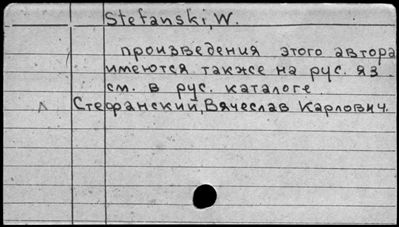 Stefanski, W.
произведения этого автора
имеются также на рус. яз.
см. в рус. каталоге
Стефанский, Вячеслав Карлович.